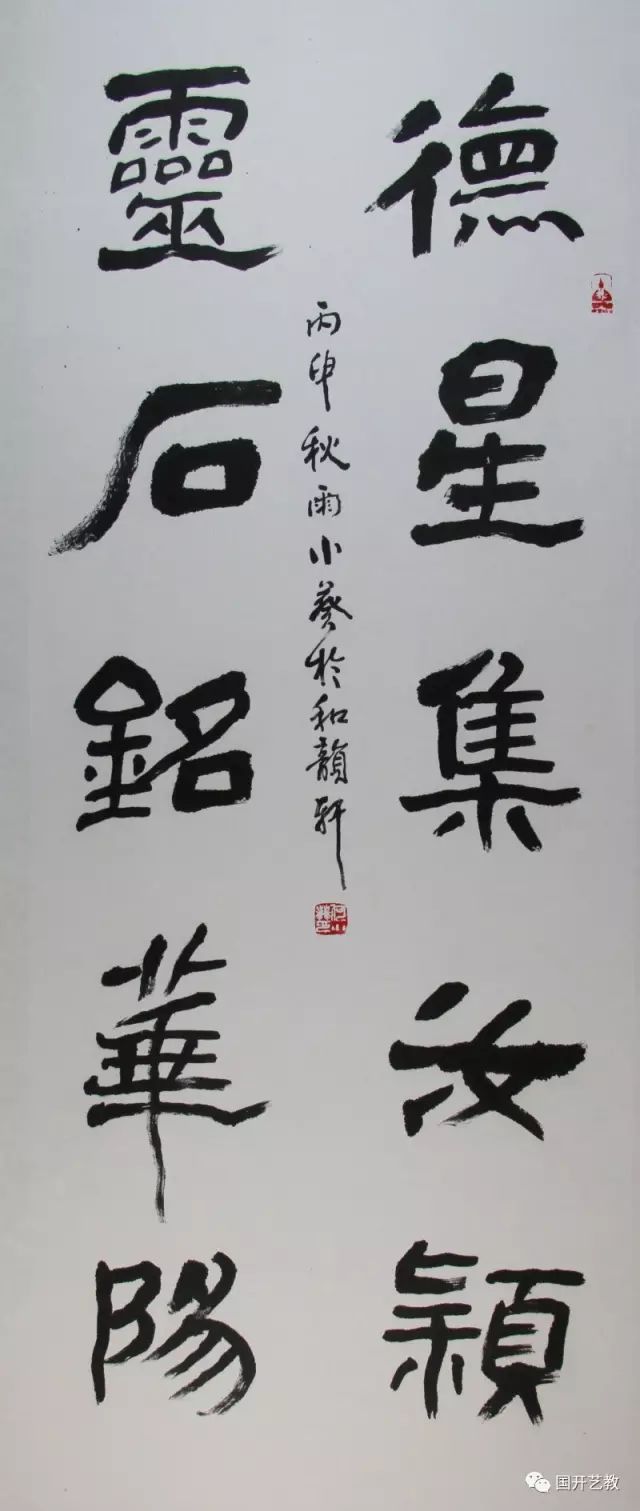 德星集汝潁
靈石銘華陽
丙申秋雨小葵於和韻軒
国开艺教